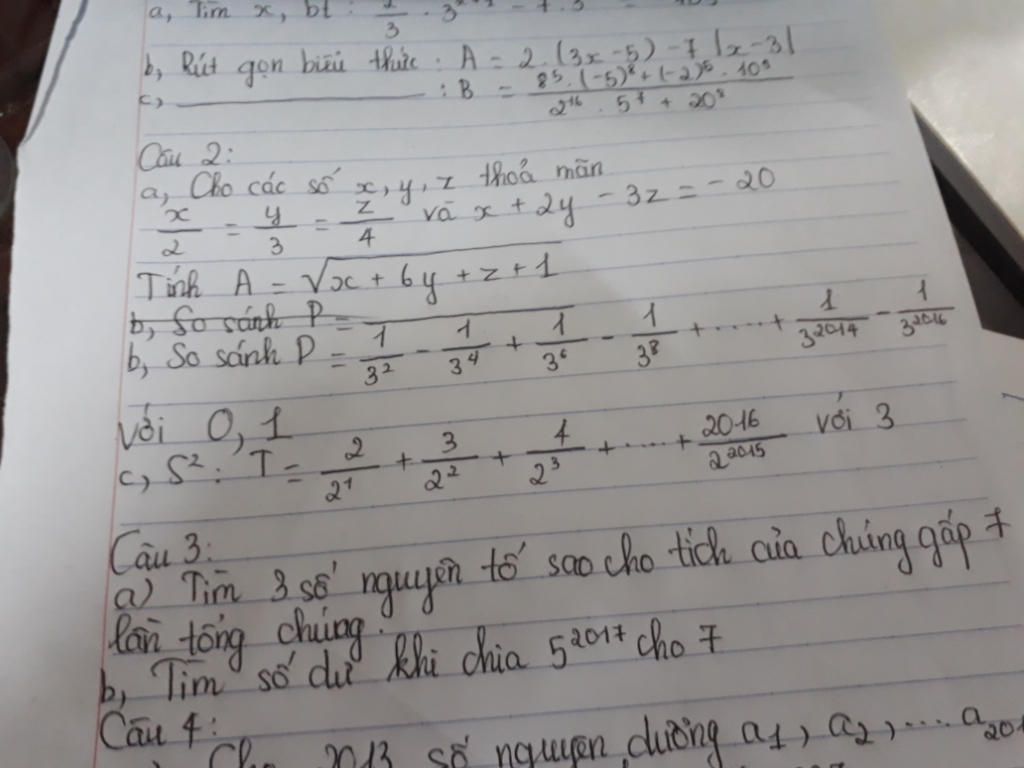 a, Tìm x, bt :
b, Rút gọn biểu thức : A = 2.(3x-5) - 7|x-3|
c, ________ : B = \frac{8^5 . (-5)^8 + (-2)^5 . 10^9}{2^{16} . 5^7 + 20^8}
Câu 2:
a, Cho các số x, y, z thoả mãn
\frac{x}{2} = \frac{y}{3} = \frac{z}{4} và x + 2y - 3z = -20
Tính A = \sqrt{x + 6y + z + 1}
b, So sánh P =
b, So sánh P = \frac{1}{3^2} - \frac{1}{3^4} + \frac{1}{3^6} - \frac{1}{3^8} + ..... + \frac{1}{3^{2014}} - \frac{1}{3^{2016}}
với 0,1
c, S^2 : T = \frac{2}{2^1} + \frac{3}{2^2} + \frac{4}{2^3} + ..... + \frac{2016}{2^{2015}} với 3
Câu 3:
a) Tìm 3 số nguyên tố sao cho tích của chúng gấp 7
lần tổng chúng.
b, Tìm số dư khi chia 5^{2017} cho 7
Câu 4:
Cho 2013 số nguyên dương a_1, a_2, ....